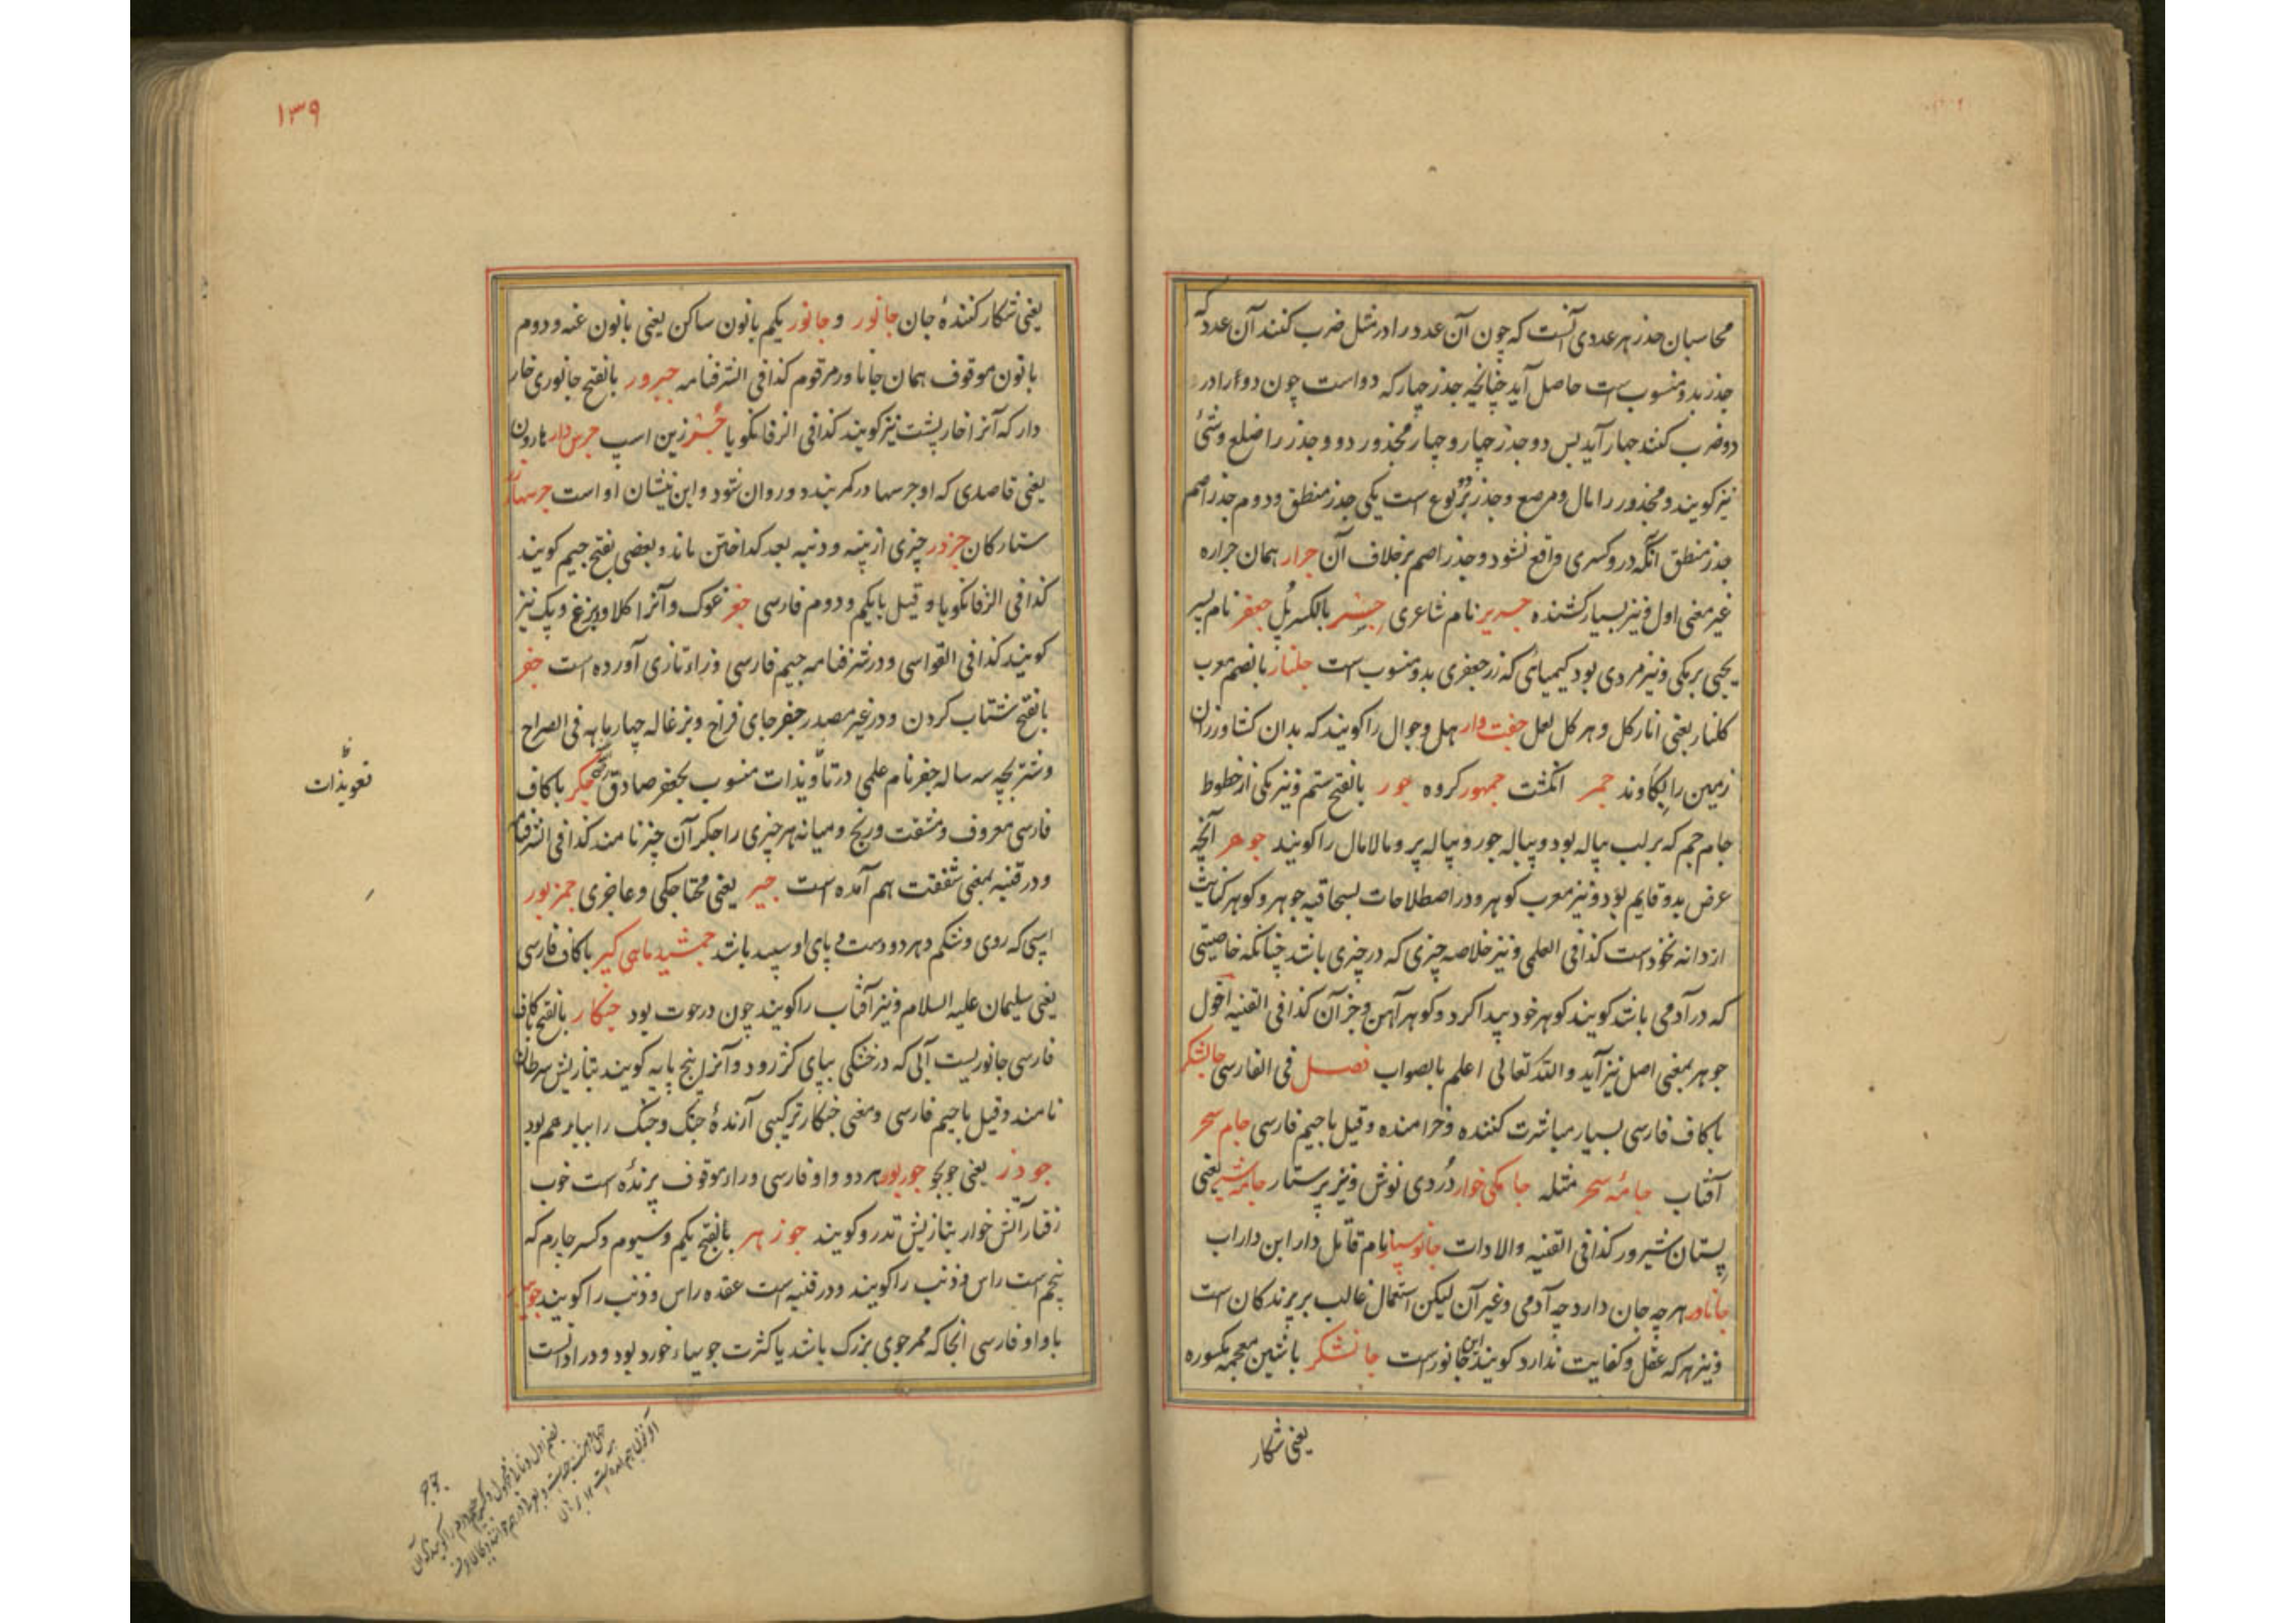 محاسبان جذر هر عددی آنست که چون آن عدد را در مثل ضرب کنند آن عدد که
جذر بدو منسوب است حاصل آید چنانچه جذر چهار که دو است چون دو را در
دو ضرب کنند چهار آید پس دو جذر چهار و چهار مجذور دو و جذر را ضلع و شئ
نیز کویند و مجذور را مال و مربع و جذر بر دو نوع است یکی جذر منطق و دوم جذر اصم
جذر منطق آنکه درو کسری واقع نشود و جذر اصم برخلاف آن جرار همان جراره
غیر معنی اول و نیز بسیار کشنده جریر نام شاعری جسر بالکسر پل جعفر نام پسر
یحیی برمکی و نیز مردی بود کیمیائی که زر جعفری بدو منسوب است جلنار بالضم معرب
کلنار یعنی انار کل و هر کل لعل جفت وار هل و جوال را کویند که بدان کشاورزان
زمین را بکاوند جمر انکشت جمهور کروه جور بالفتح ستم و نیز یکی از خطوط
جام جم که بر لب پیاله بود و پیاله جور و پیاله پر و مالامال را کویند جوهر آنچه
عرض بدو قایم بود و نیز معرب کوهر و در اصطلاحات جوهر و کوهر کنایت
از دانه نخود است کذا فی العلمی و نیز خلاصه چیزی که در چیزی باشد چنانکه خاصیتی
که در آدمی باشد کویند کوهر خود پیدا کرد و کوهر آهن و جز آن کذا فی القنیه اقول
جوهر بمعنی اصل نیز آید والله تعالی اعلم بالصواب فصل فی الفارسی جالشکر
با کاف فارسی بسیار مباشرت کننده و خرامنده و قیل با جیم فارسی جام سحر
آفتاب جامه سحر مثله جامکی خوار دُردی نوش و نیز پرستار جامه شیر یعنی
پستان شیرور کذا فی القنیه والادات جانوسیار نام قاتل دارا ابن داراب
جاناور هر چه جان دارد چه آدمی و غیر آن لیکن استعمال غالب بر پرندکان است
و نیز هر که عقل و کفایت ندارد کویند این جانور است جانشکر با شین معجمه مکسوره
یعنی شکار
۱۳۹
یعنی شکار کنندهٔ جان جانور و جانور یکم با نون ساکن یعنی با نون غنه و دوم
با نون موقوف همان جاناور مرقوم کذا فی الشرفنامه جبرور بالفتح جانوری خار
دار که آنرا خارپشت نیز کویند کذا فی الزفانکویا زین اسپ جرس دار هارون
یعنی قاصدی که او جرسها در کمر بندد و روان شود و این نشان او است
ستارکان جزدر چیزی از پیه و دنبه بعد کداختن ماند و بعضی بفتح جیم کویند
کذا فی الزفانکویا و قیل با یکم و دوم فارسی جغر غوک و آنرا کلاو و بزغ و پک نیز
کویند کذا فی القواسی و در شرفنامه جیم فارسی و زاء تازی آورده است جفر
بالفتح شتاب کردن و در غیر مصدر جفر جای فراخ و بزغاله چهار ماهه فی الصراح
و شتر بچه سه ساله جفر نام علمی در تأویذات منسوب بجعفر صادق جکر با کاف
فارسی معروف و مشقت و رنج و میانه هر چیزی را جکر آن چیز نامند کذا فی الشرفنامه
و در قنیه بمعنی شفقت هم آمده است جیر یعنی محتاجکی و عاجزی جمزبور
اسپی که روی و شکم و هر دو دست و پای او سپید باشد جمشید ماهی کیر با کاف فارسی
یعنی سلیمان علیه السلام و نیز آفتاب را کویند چون در حوت بود جنکار بالفتح با کاف
فارسی جانوریست آبی که در خشکی بپای کژ رود و آنرا پنج پایه کویند بتازیش سرطان
نامند و قیل با جیم فارسی و معنی جنکار ترکیبی آرندهٔ جنک و جنک را بیار هم بود
جودر یعنی جوبجو جوربور هر دو واو فارسی و راء موقوف پرنده است خوب
رفتار آتش خوار بتازیش تدرو کویند جوزهر بالفتح یکم و سیوم و کسر چارم که
پنجم است راس و ذنب را کویند و در قنیه است عقده راس و ذنب را کویند
با واو فارسی آنجا که ممر جوی بزرک باشد یا کثرت جویهاء خورد بود و در ادات است
ظ
تعویذات